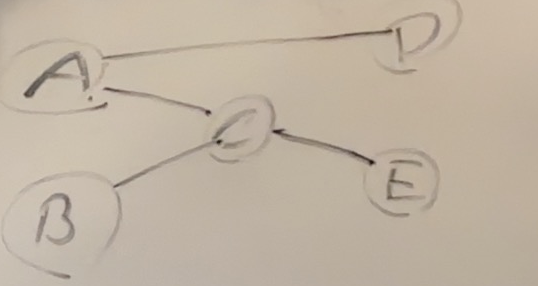 A
D
C
B
E